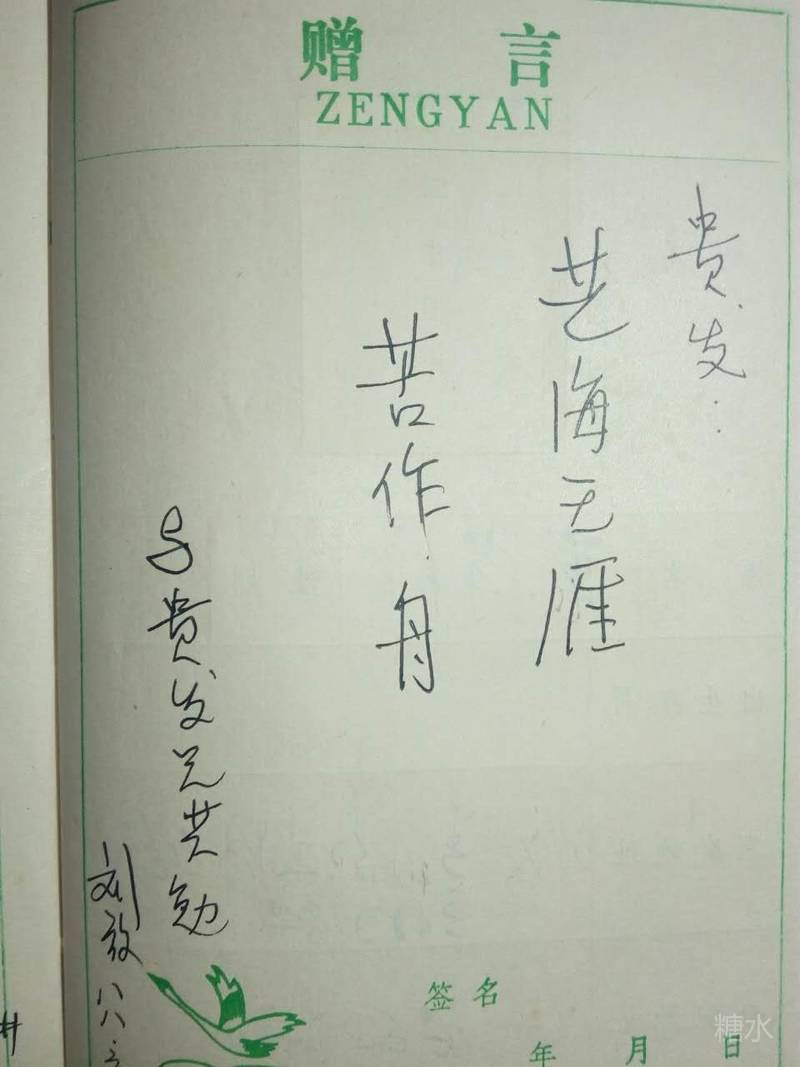 赠言
ZENGYAN
贵发：
艺海无涯
苦作舟
与贵发兄共勉
刘放
八八.
签名
年 月 日
糖水